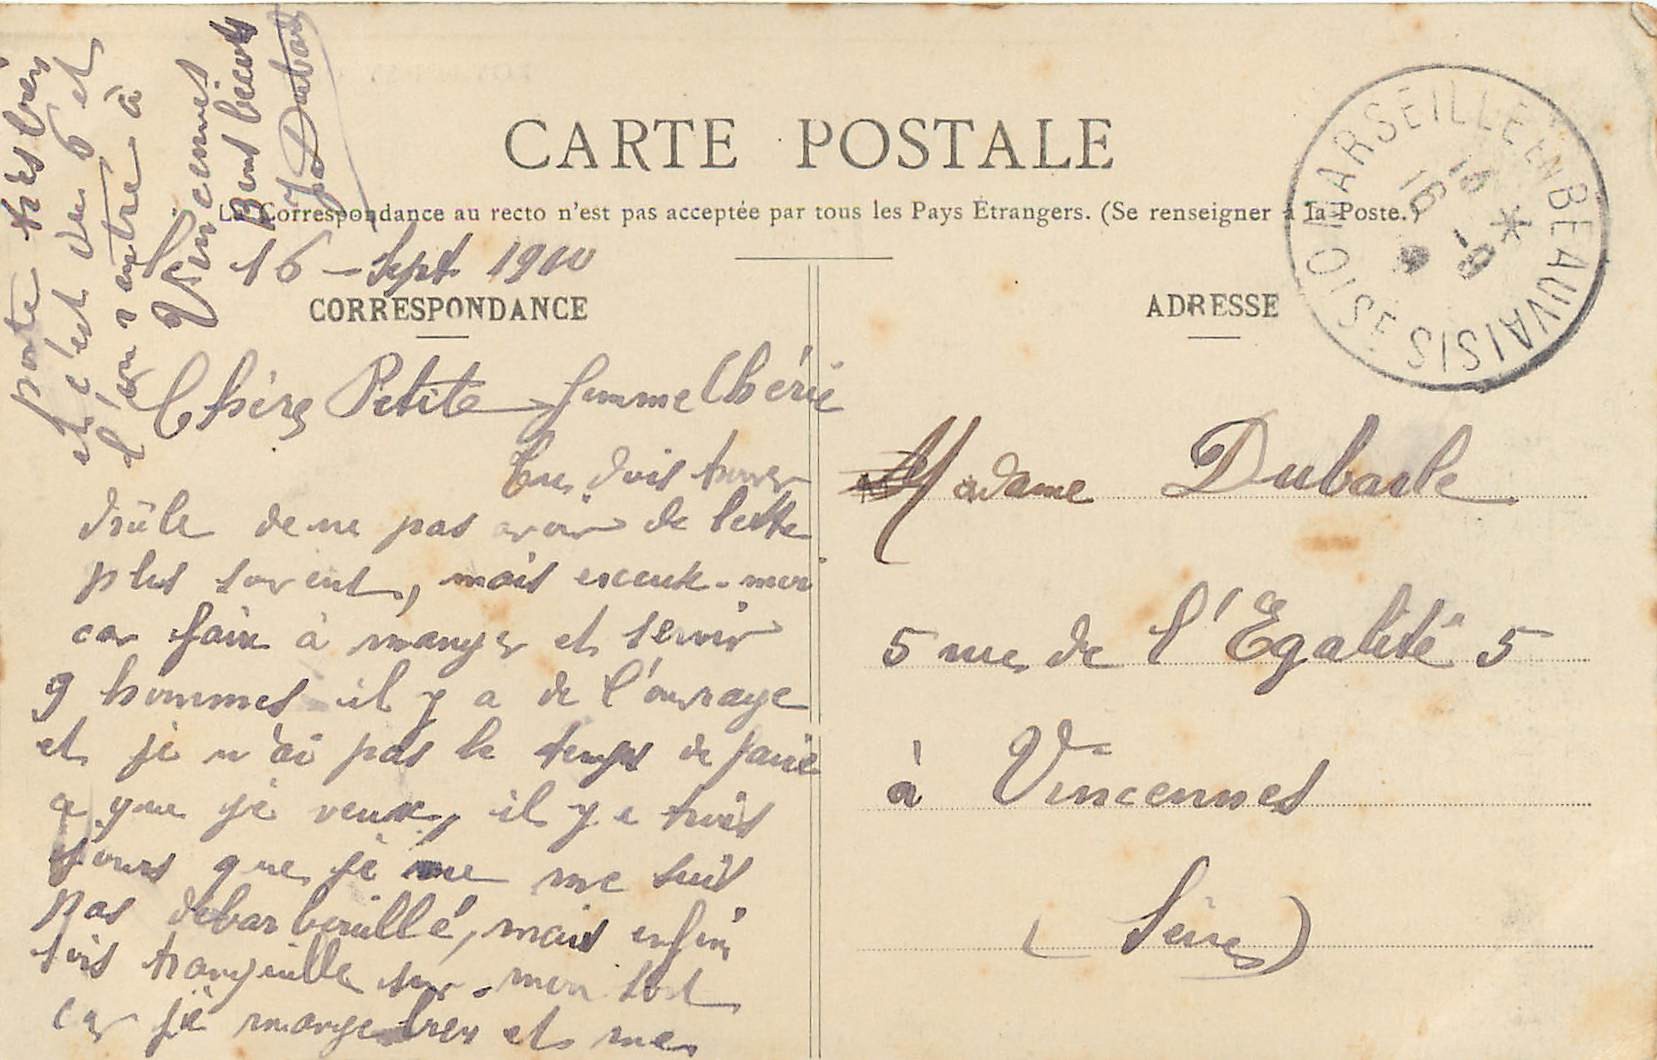 CARTE POSTALE
La Correspondance au recto n'est pas acceptée par tous les Pays Étrangers. (Se renseigner à la Poste.)
CORRESPONDANCE
Le 16 - Sept 1910
Chère Petite femme Chérie
Tu dois trouver
drôle de ne pas avoir de lettre
plus souvent, mais excuse-moi
car faire à manger et servir
9 hommes il y a de l'ouvrage
et je n'ai pas le temps de faire
ce que je veux, il y a trois
jours que je ne me suis
pas débarbouillé, mais enfin
sois tranquille sur mon sort
car je mange bien et me
porte très bien
et c'est du 6 et
l'on rentre à
Vincennes
Bons baisers
Dubarle
ADRESSE
Madame Dubarle
5 rue de l'Egalité 5
à Vincennes
(Seine)
MARSEILLE EN BEAUVAISIS
OISE
16 - 9